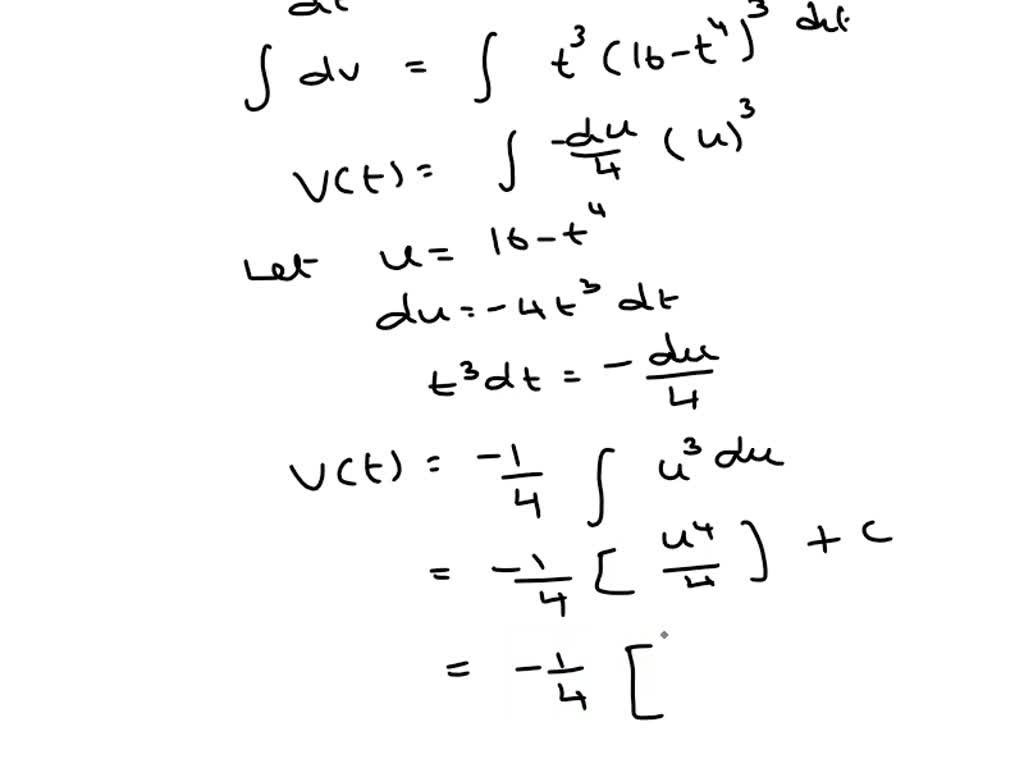 dt
∫ dv = ∫ t³ (16-t⁴)³ dt
V(t) = ∫ -du/4 (u)³
Let u = 16-t⁴
du = -4t³ dt
t³dt = -du/4
V(t) = -1/4 ∫ u³ du
= -1/4 [ u⁴/4 ] + c
= -1/4 [